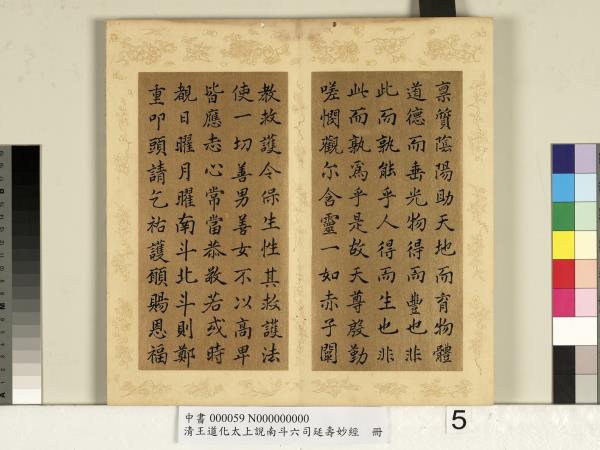 稟質陰陽助天地而育物體
道德而垂光物得而豐也非
此而孰能乎人得而生也非
此而孰爲乎是故天尊殷勤
嗟憫觀尒含靈一如赤子闡
教救護令保生性其救護法
使一切善男善女不以高卑
皆應志心常當恭敬若或時
覩日曜月曜南斗北斗則鄭
重叩頭請乞祐護頤賜恩福
中書 000059 N000000000
清王道化太上說南斗六司延壽妙經 冊
5